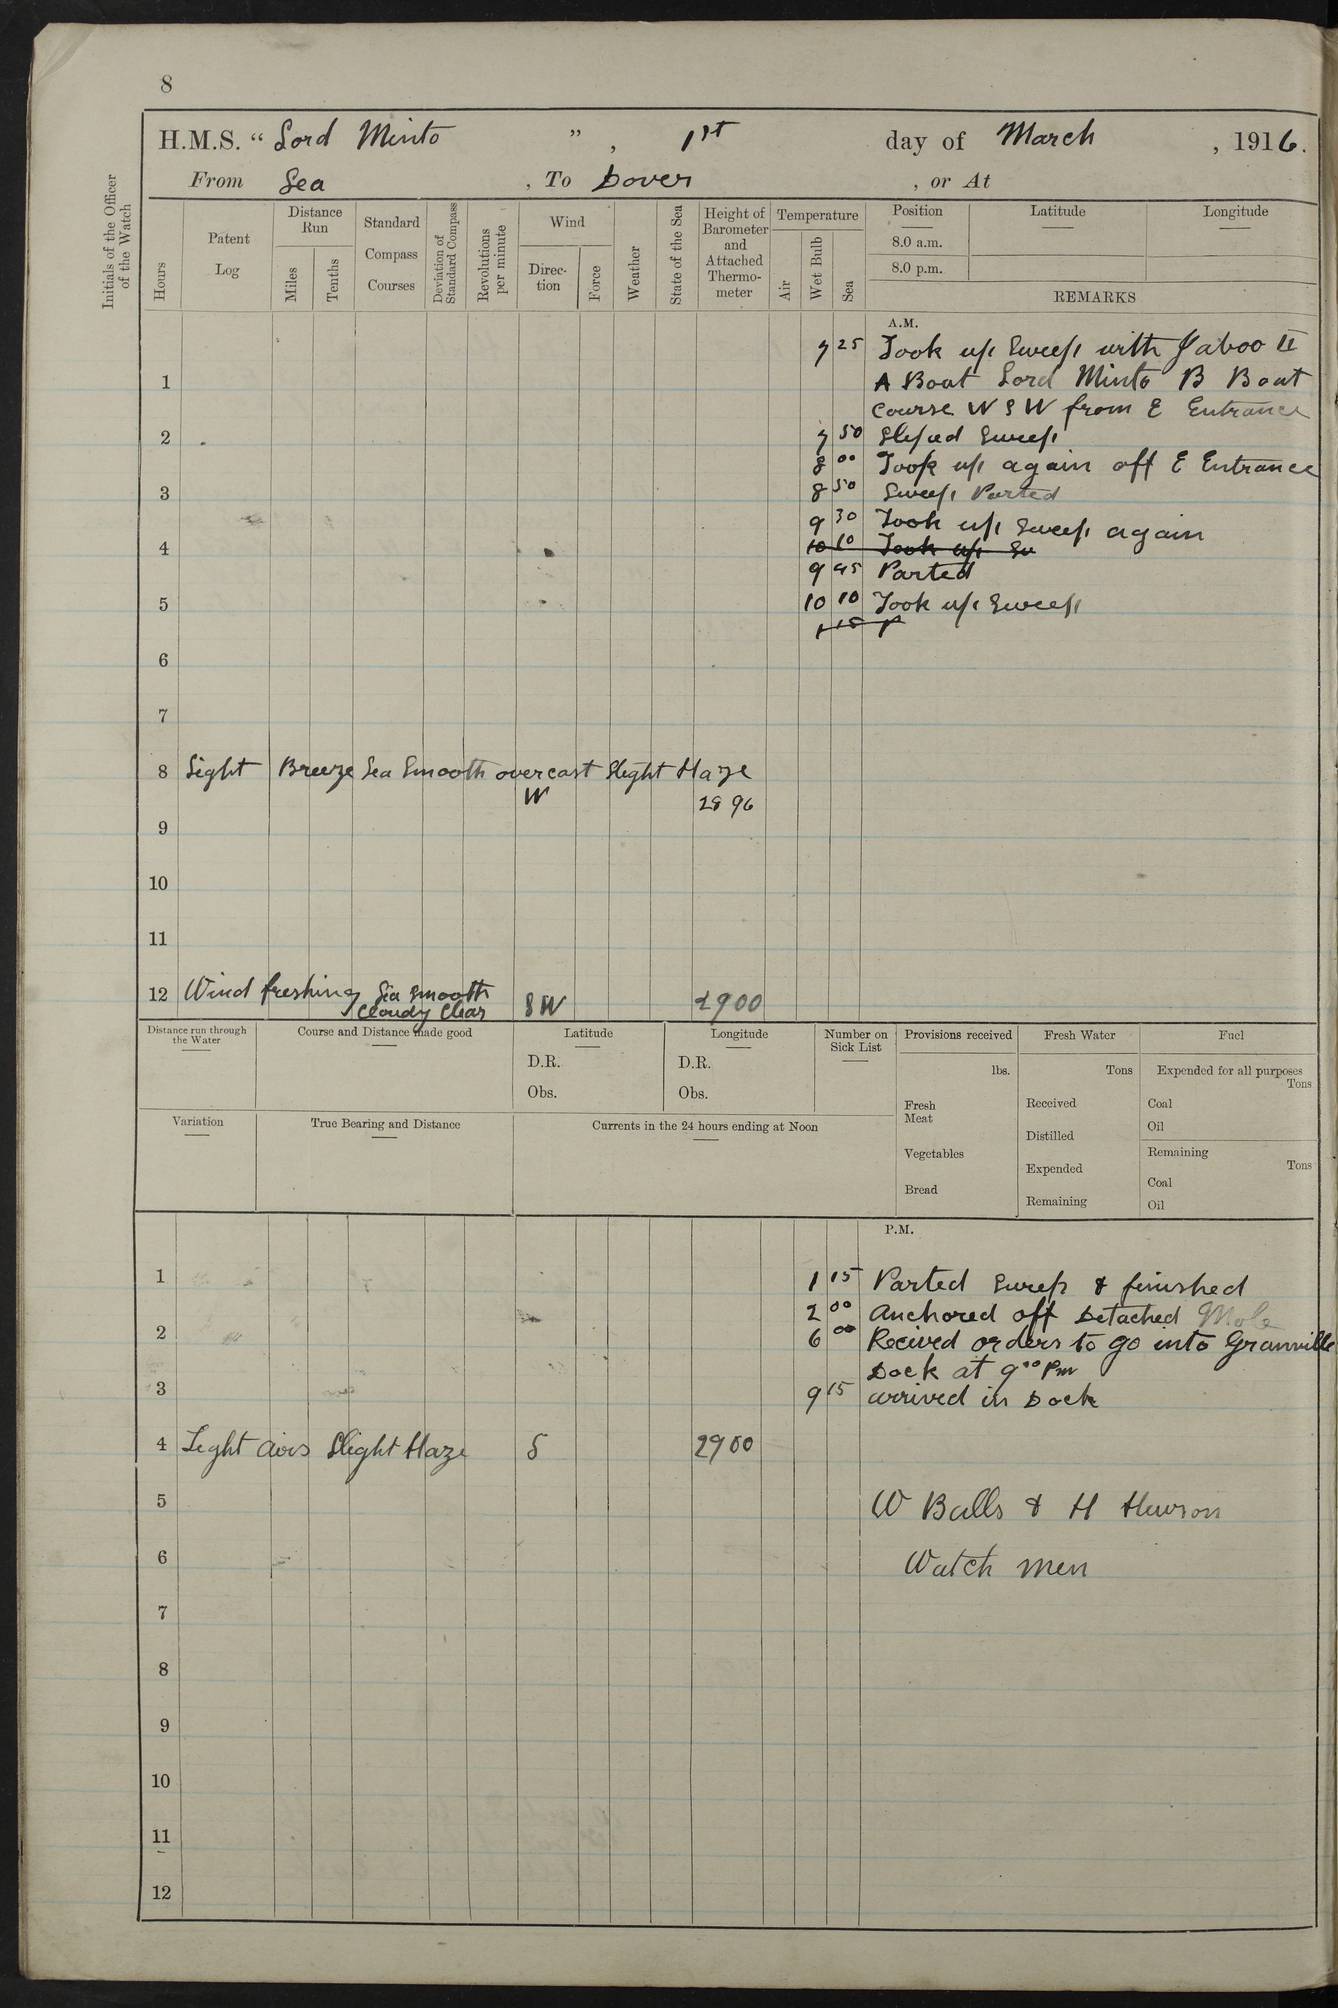 8
H.M.S. " Lord Minto ", 1st day of March, 1916.
From Sea, To Dover, or At
Initials of the Officer of the Watch
Hours
Patent Log
Distance Run
Miles
Tenths
Standard Compass Courses
Deviation of Standard Compass
Revolutions per minute
Wind
Direc-tion
Force
Weather
State of the Sea
Height of Barometer and Attached Thermo-meter
Temperature
Air
Wet Bulb
Sea
Position
8.0 a.m.
8.0 p.m.
Latitude
Longitude
REMARKS
A.M.
7 25 Took up Sweep with Jaboo II
1 A Boat Lord Minto B Boat
Course W S W from E Entrance
2 7 50 Sliped Sweep
8 00 Took up again off E Entrance
3 8 50 Sweep Parted
9 30 Took up Sweep again
4 10 10 Took up Sw
9 45 Parted
5 10 10 Took up Sweep
1 15 P
6
7
8 Light Breeze Sea Smooth overcast Slight Haze
W 28 96
9
10
11
12 Wind freshing Sea smooth
Cloudy Clear S W 2900
Distance run through the Water
Course and Distance made good
Latitude
D.R.
Obs.
Longitude
D.R.
Obs.
Number on Sick List
Provisions received
lbs.
Fresh Meat
Vegetables
Bread
Fresh Water
Tons
Received
Distilled
Expended
Remaining
Fuel
Expended for all purposes
Tons
Coal
Oil
Remaining
Tons
Coal
Oil
Variation
True Bearing and Distance
Currents in the 24 hours ending at Noon
P.M.
1 1 15 Parted Sweep & finished
2 00 Anchored off Detached Mole
2 6 00 Recived orders to go into Granville
Dock at 9 00 Pm
3 9 15 arrived in Dock
4 Light airs Slight Haze S 2900
5 W Balls & H Hewson
6 Watch men
7
8
9
10
11
12